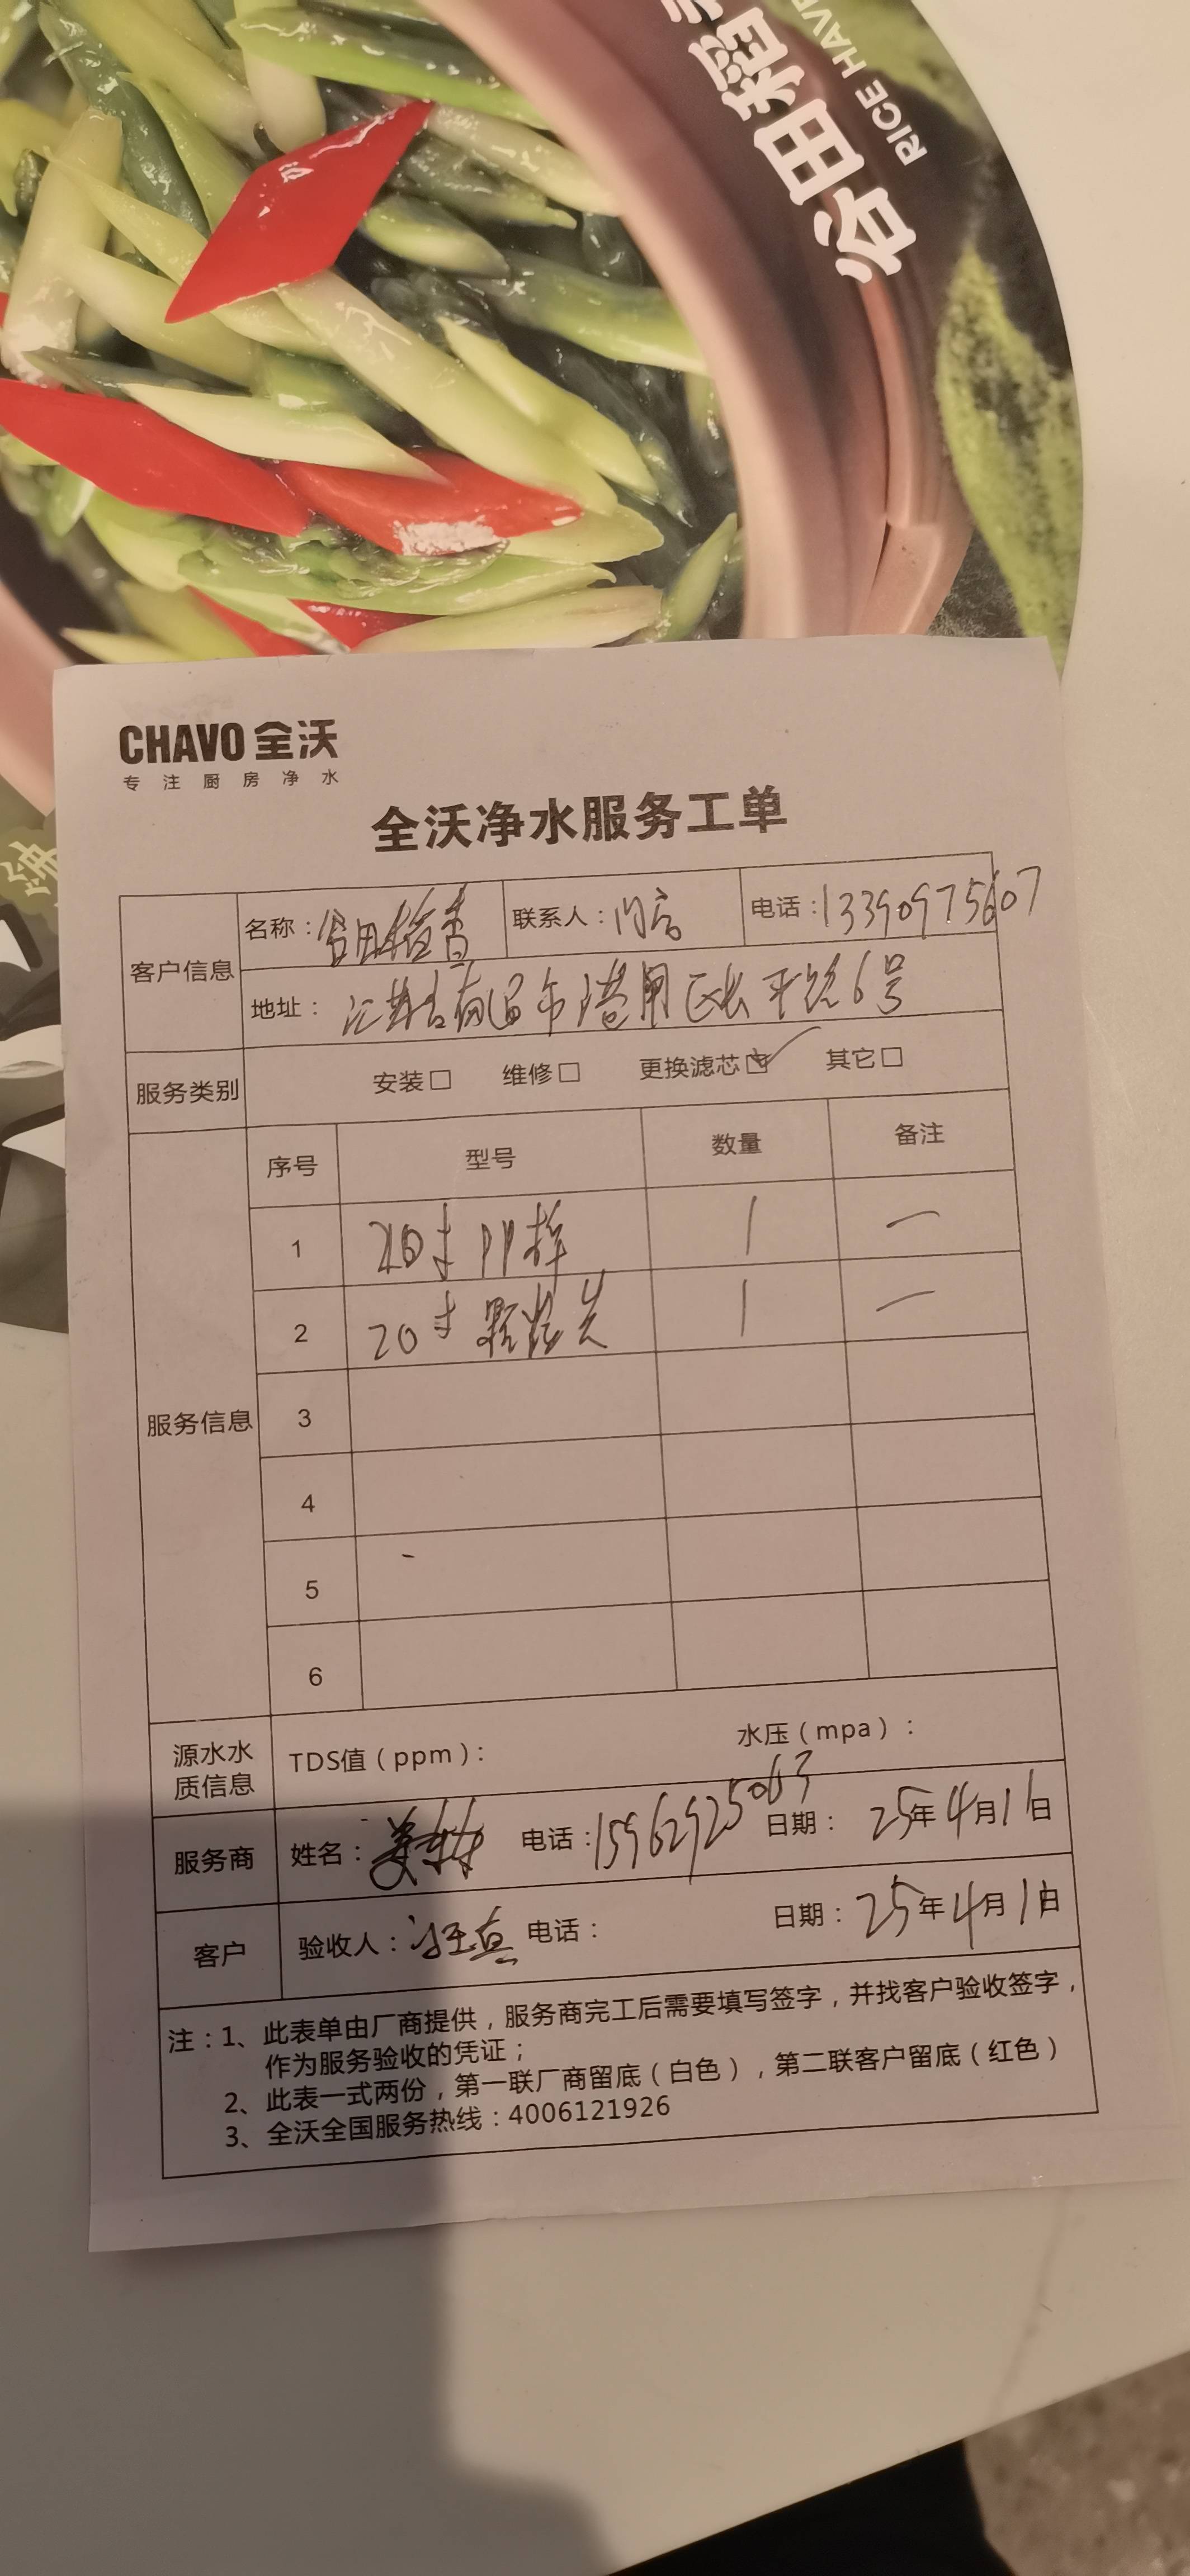 谷田稻香
RICE HAVE
CHAVO 全沃
专注厨房净水
全沃净水服务工单
客户信息
名称：谷田稻香 联系人：门店 电话：13390975607
地址：江苏省南通市港闸区长平路6号
服务类别 安装□ 维修□ 更换滤芯☑ 其它□
服务信息
序号 型号 数量 备注
1 20寸PP棉 1 一
2 20寸颗粒炭 1 一
3
4
5
6
源水水质信息 TDS值（ppm）： 水压（mpa）：
服务商 姓名： 电话：15962925063 日期：25年4月16日
客户 验收人： 电话： 日期：25年4月1日
注：1、此表单由厂商提供，服务商完工后需要填写签字，并找客户验收签字，
作为服务验收的凭证；
2、此表一式两份，第一联厂商留底（白色），第二联客户留底（红色）
3、全沃全国服务热线：4006121926